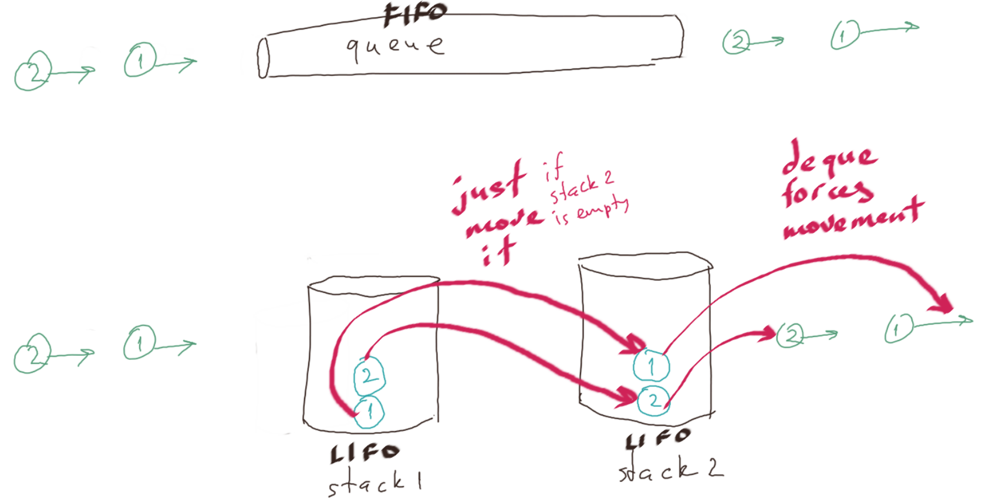 FIFO
queue
2
1
2
1
just if
stack 2
move is empty
it
deque
forces
movement
2
1
2
1
1
2
2
1
LIFO
stack 1
LIFO
stack 2